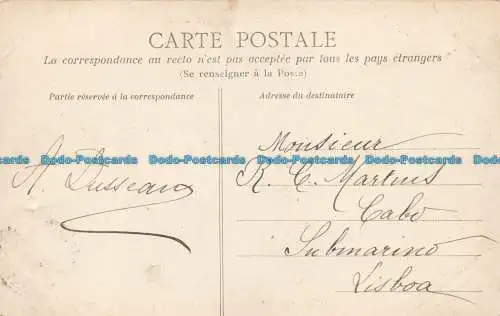 CARTE POSTALE
La correspondance au recto n'est pas acceptée par tous les pays étrangers
(Se renseigner à la Poste)
Partie réservée à la correspondance
Adresse du destinataire
A. Dusseaux
Monsieur
R. C. Martins
Cabo
Submarino
Lisboa
Dodo-Postcards Dodo-Postcards Dodo-Postcards Dodo-Postcards Dodo-Postcards
Dodo-Postcards Dodo-Postcards Dodo-Postcards Dodo-Postcards